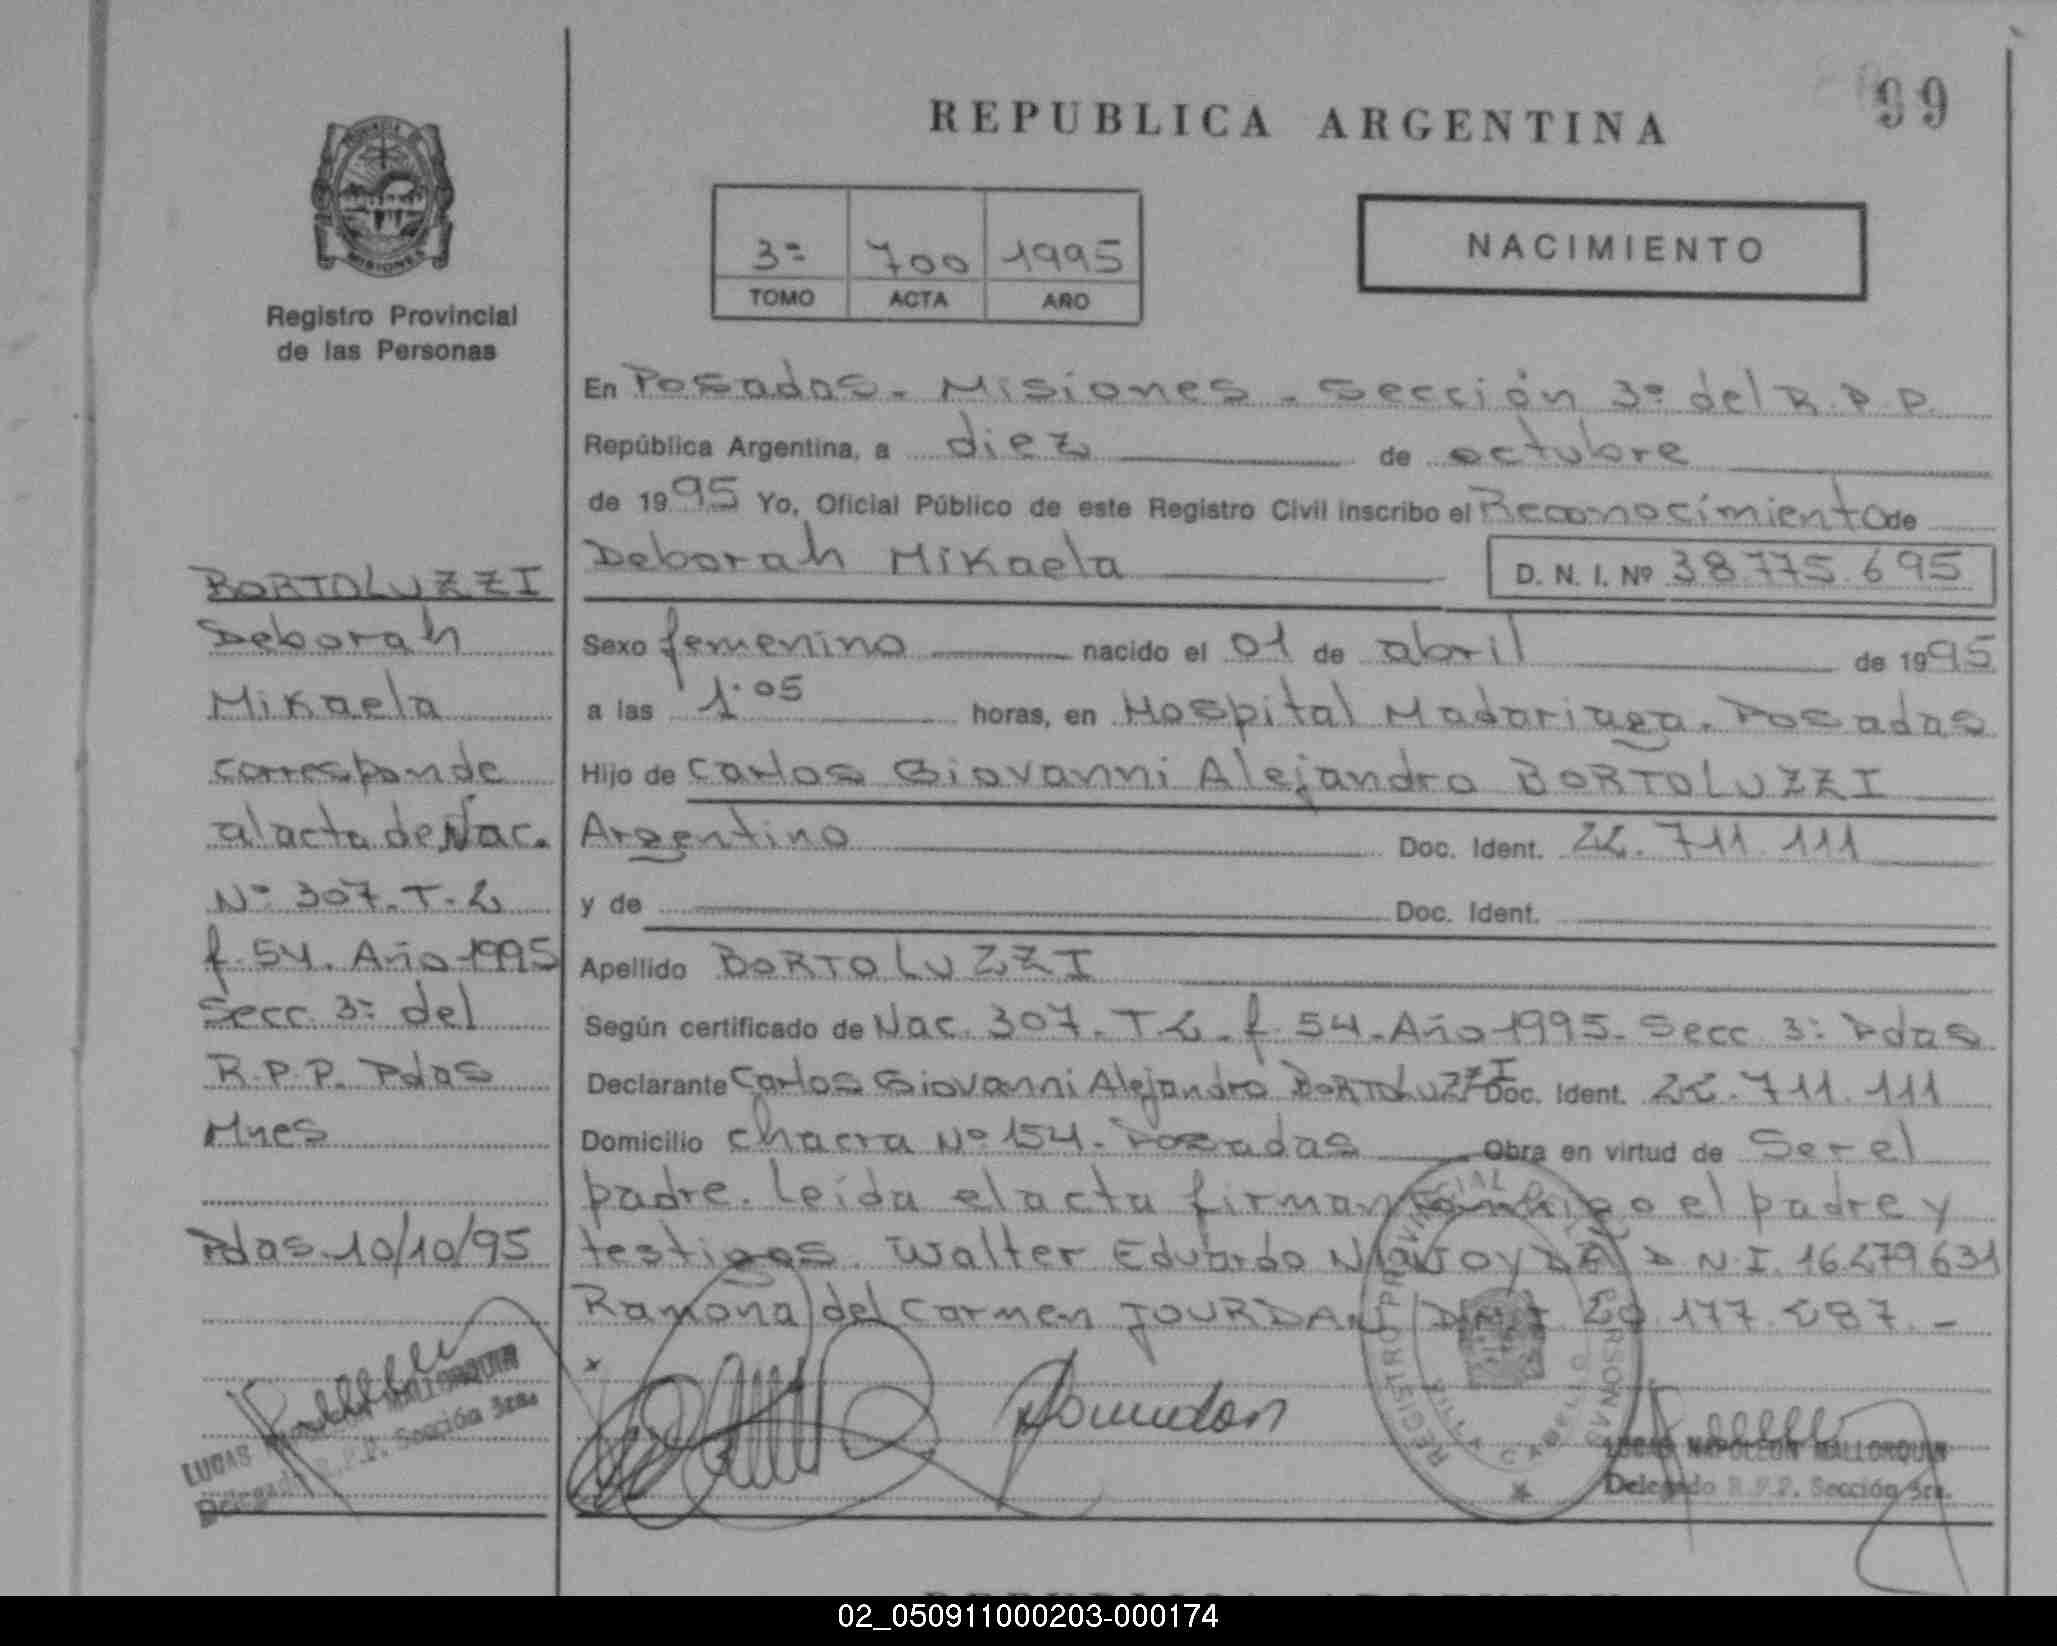 99
REPUBLICA ARGENTINA
MISIONES
Registro Provincial
de las Personas
3ª 700 1995
TOMO ACTA AÑO
NACIMIENTO
En Posadas - Misiones - Sección 3ª del R.P.P.
República Argentina, a diez de octubre
de 1995 Yo, Oficial Público de este Registro Civil inscribo el Reconocimiento de
Deborah Mikaela D. N. I. Nº 38.775.695
Sexo femenino nacido el 01 de abril de 1995
a las 1.05 horas, en Hospital Madariaga. Posadas
Hijo de Carlos Giovanni Alejandro BORTOLUZZI
Argentino Doc. Ident. 22.711.111
y de Doc. Ident.
Apellido BORTOLUZZI
Según certificado de Nac. 307. T-2. f. 54. Año 1995. Secc. 3ª Pdas
Declarante Carlos Giovanni Alejandro BORTOLUZZI Doc. Ident. 22.711.111
Domicilio chacra Nº 154. Posadas Obra en virtud de Ser el
padre. Leída el acta firman conmigo el padre y
testigos. Walter Eduardo D.N.I. 16.279.631
Ramona del Carmen JOURDAN D.N.I. 20.177.287.-
BORTOLUZZI
Deborah
Mikaela
corresponde
al acta de Nac.
Nº 307. T. 2
f. 54. Año 1995
Secc. 3ª del
R.P.P. Pdas
Mnes
Pdas 10/10/95
LUCAS MALLORQUIN
Delegado R.P.P. Sección 3ra.
Jourdan
REGISTRO PROVINCIAL DE LAS PERSONAS
VILLA CABELLO
LUCAS NAPOLEON MALLORQUIN
Delegado R.P.P. Sección 3ra.
02_050911000203-000174